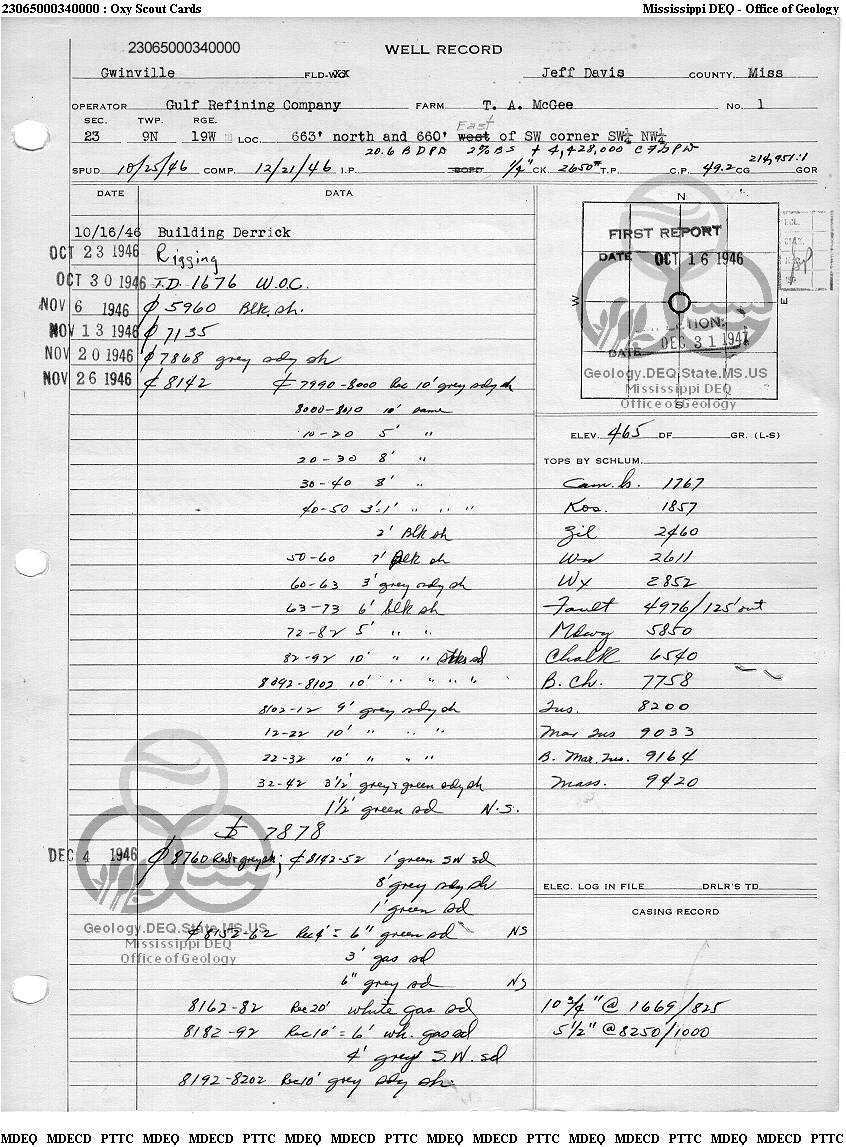 23065000340000 : Oxy Scout Cards Mississippi DEQ - Office of Geology
23065000340000
WELL RECORD
Gwinville FLD-WXX Jeff Davis COUNTY, Miss
OPERATOR Gulf Refining Company FARM T. A. McGee No. 1
SEC. TWP. RGE.
East
23 9N 19W LOC. 663' north and 660' west of SW corner SW¼ NW¼
20.6 BDPD 2% BS + 4,428,000 CF/PD
SPUD 10/25/46 COMP. 12/21/46 I.P. BOPD ¼" CK. 2650# T.P. C.P. 49.2 CG 214,951:1 GOR
DATE DATA
10/16/46 Building Derrick
OCT 23 1946 Rigging
OCT 30 1946 T.D. 1676 W.O.C.
NOV 6 1946 5960 Blk. sh.
NOV 13 1946 7135
NOV 20 1946 7868 grey sdy sh
NOV 26 1946 8142 7990-8000 Rec 10' grey sdy sh
8000-8010 10' same
10-20 5' "
20-30 8' "
30-40 8' "
40-50 3': 1' " " "
2' Blk sh
50-60 7' Blk sh
60-63 3' grey sdy sh
63-73 6' blk sh
72-82 5' " "
82-92 10' " " stks sd
8092-8102 10' " " " " "
8102-12 9' grey sdy sh
12-22 10' " " "
22-32 10' " " "
32-42 3½' grey & green sdy sh
1½' green sd N.S.
7878
DEC 4 1946 8760 Red & grey sh; 8142-52 1' green SW sd
8' grey sdy sh
1' green sd
8152-62 Rec 4' = 6" green sd NS
3' gas sd
6" grey sd NS
8162-82 Rec 20' white gas sd
8182-92 Rec 10' = 6' wh. gas sd
4' grey S.W. sd
8192-8202 Rec 10' grey sdy sh.
N
W
E
S
FIRST REPORT
DATE OCT 16 1946
DATE DEC 31 1947
Geology.DEQ.State.MS.US
Mississippi DEQ
Office of Geology
ELEV. 465 DF GR. (L-S)
TOPS BY SCHLUM.
Cam. b. 1767
Kos. 1857
Zil 2460
Wn 2611
Wx 2852
Fault 4976/125' out
Mdwy 5850
Chalk 6540
B. Ch. 7758
Tus. 8200
Mar Tus 9033
B. Mar. Tus. 9164
Mass. 9420
ELEC. LOG IN FILE DRLR'S TD
CASING RECORD
10 ¾" @ 1669/825
5 ½" @ 8250/1000
Geology.DEQ.State.MS.US
Mississippi DEQ
Office of Geology
MDEQ MDECD PTTC MDEQ MDECD PTTC MDEQ MDECD PTTC MDEQ MDECD PTTC MDEQ MDECD PTTC MDEQ MDECD PTTC